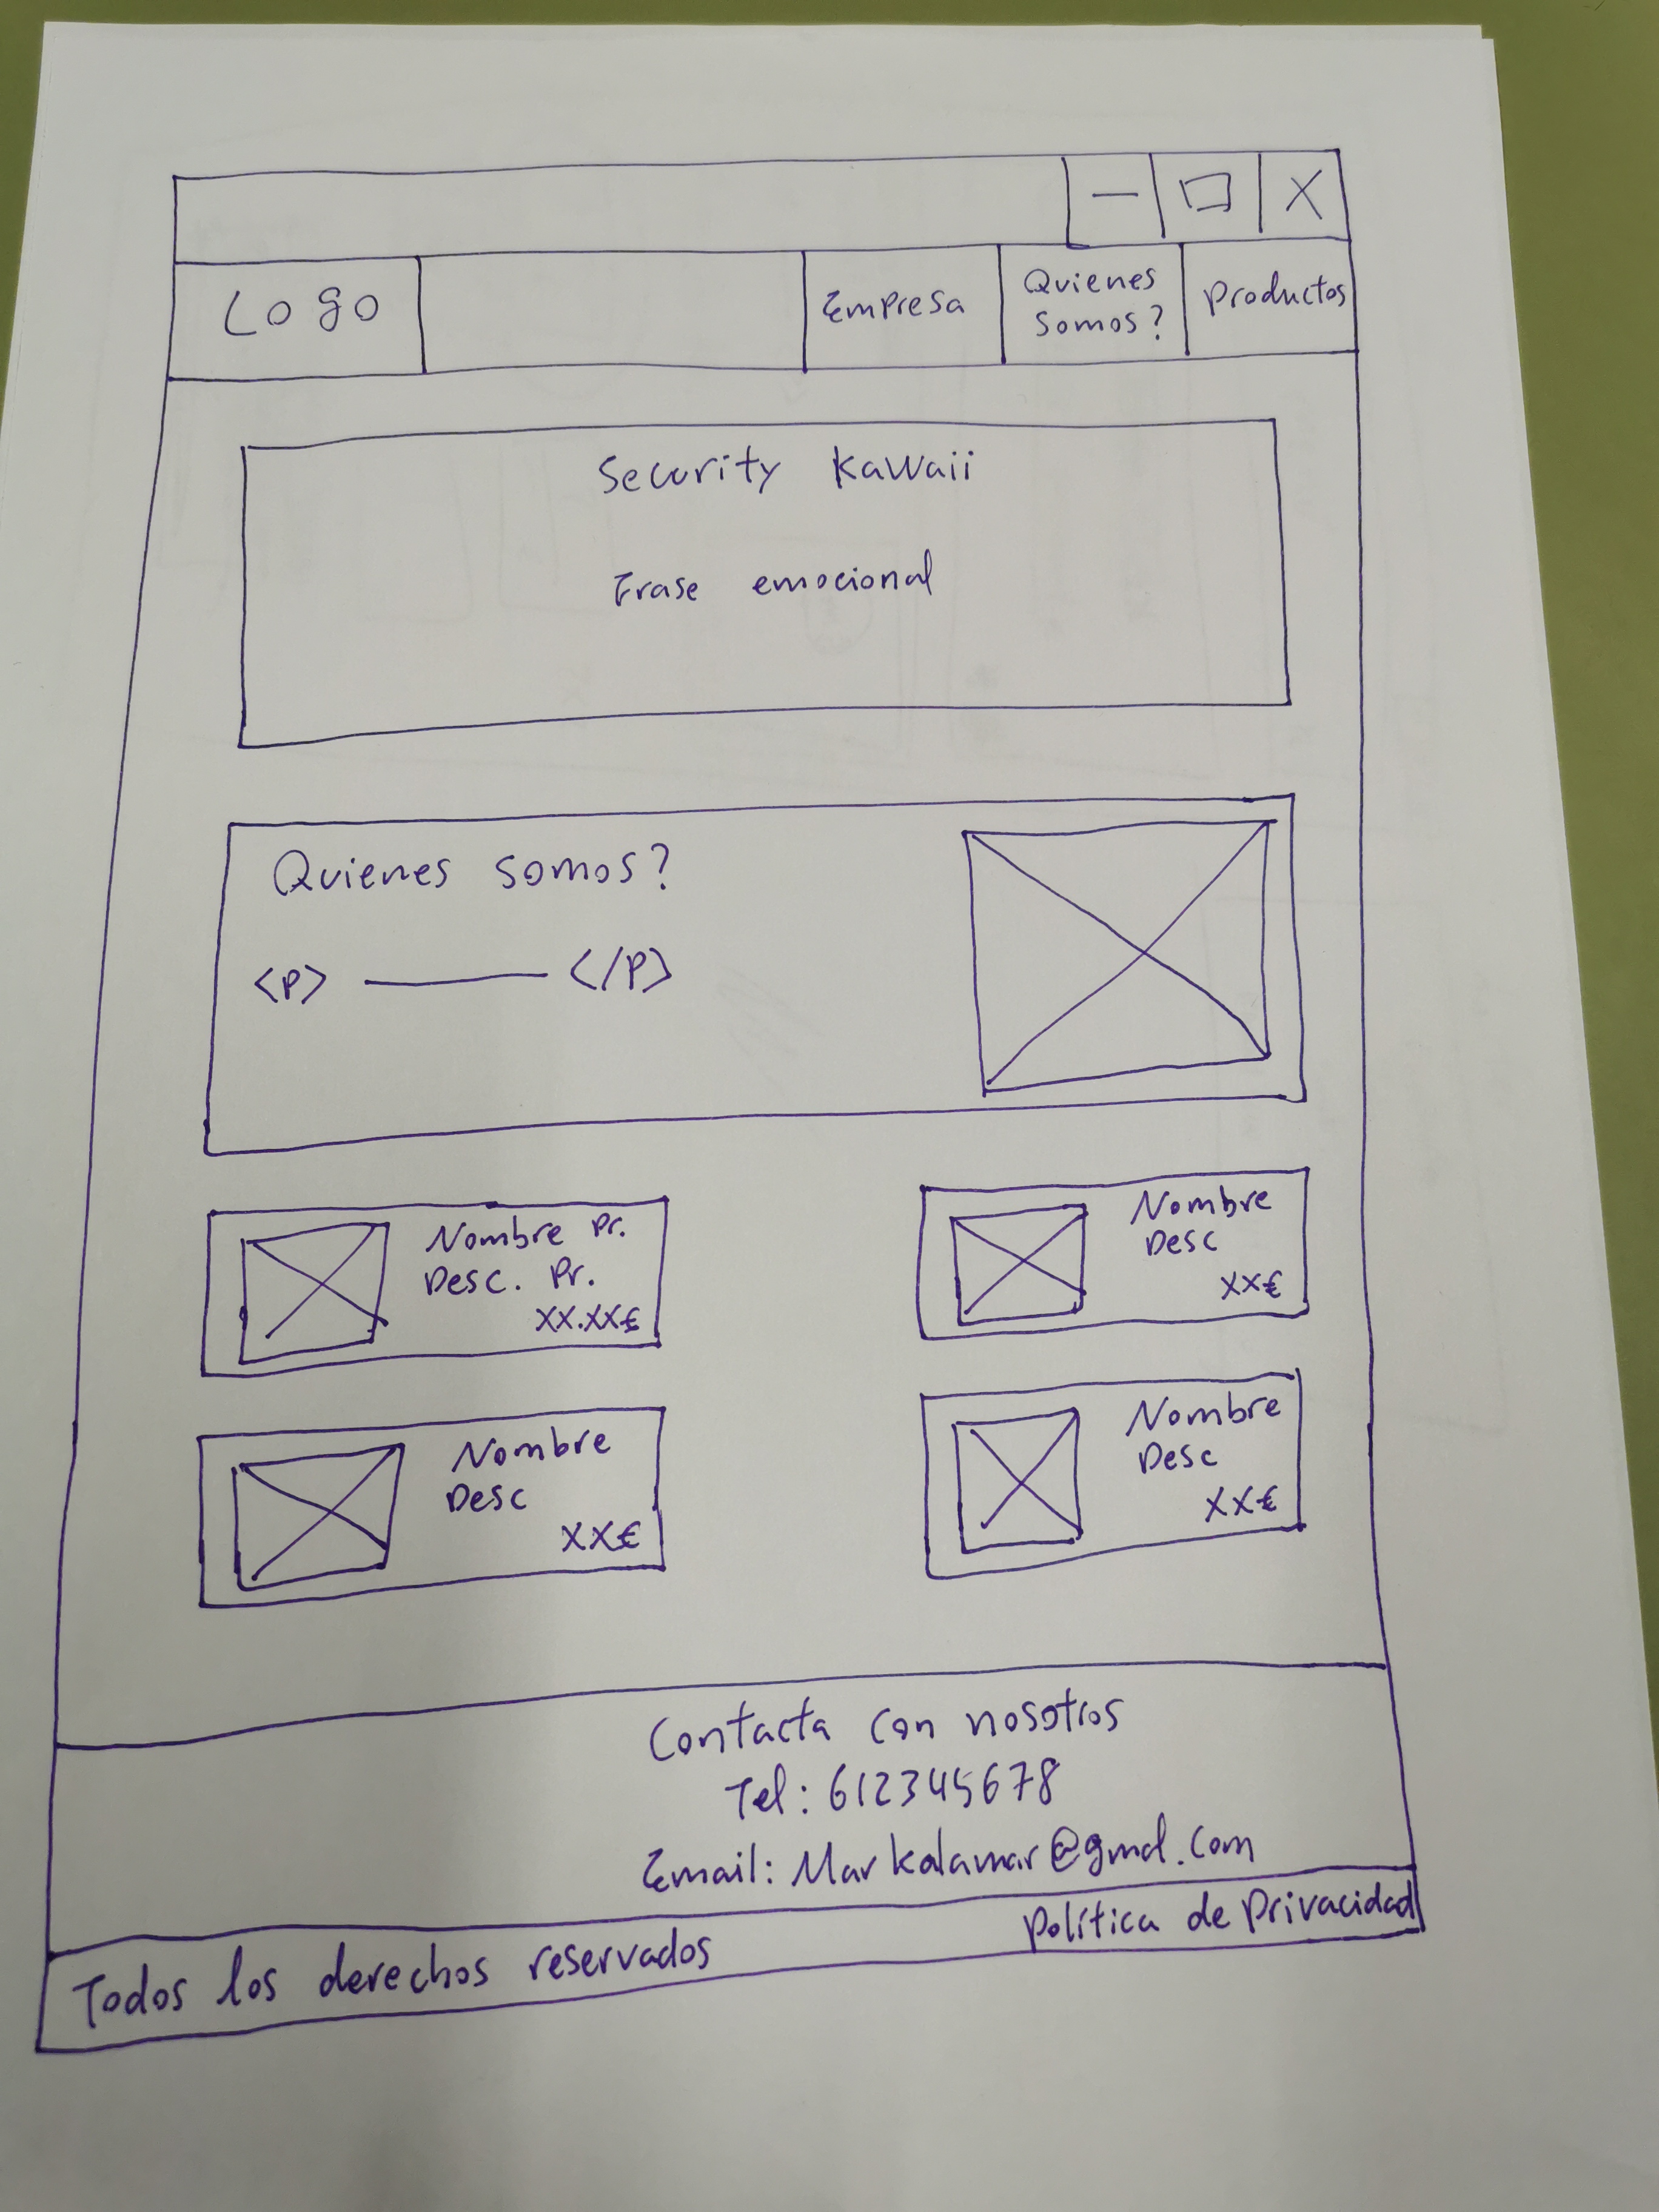 Logo
Empresa
Quienes
somos?
Productos
Security Kawaii
Frase emocional
Quienes somos?
<p> </p>
Nombre Pr.
Desc. Pr.
XX.XX€
Nombre
Desc
XX€
Nombre
Desc
XX€
Nombre
Desc
XX€
Contacta con nosotros
Tel: 612345678
Email: Markalamar@gmal.com
Todos los derechos reservados
Política de Privacidad